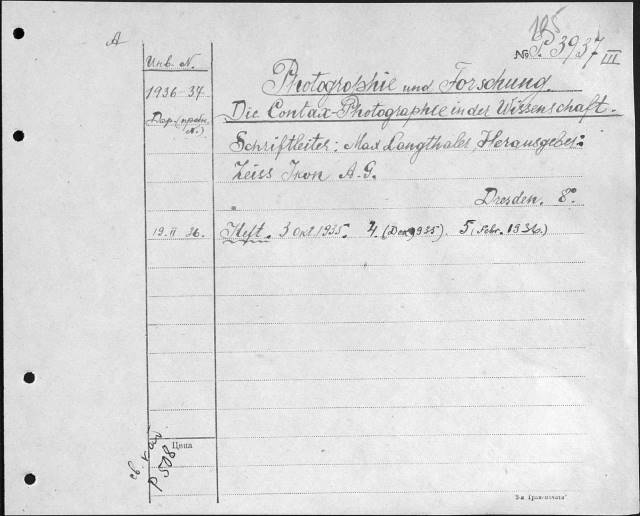 195
№ P. 3937 III
A
Инв. N.
1936-37
Дар. (преж. N.)
Photographie und Forschung.
Die Contax-Photographie in der Wissenschaft.
Schriftleiter: Max Langthaler, Herausgeber:
Zeiss Ikon A.G.
" Dresden. 8°.
19. II 36. Heft. 3 Okt 1935. 4. (Dez. 1935). 5 (Febr. 1936.)
Цена
р 508
3-я Гран-печати